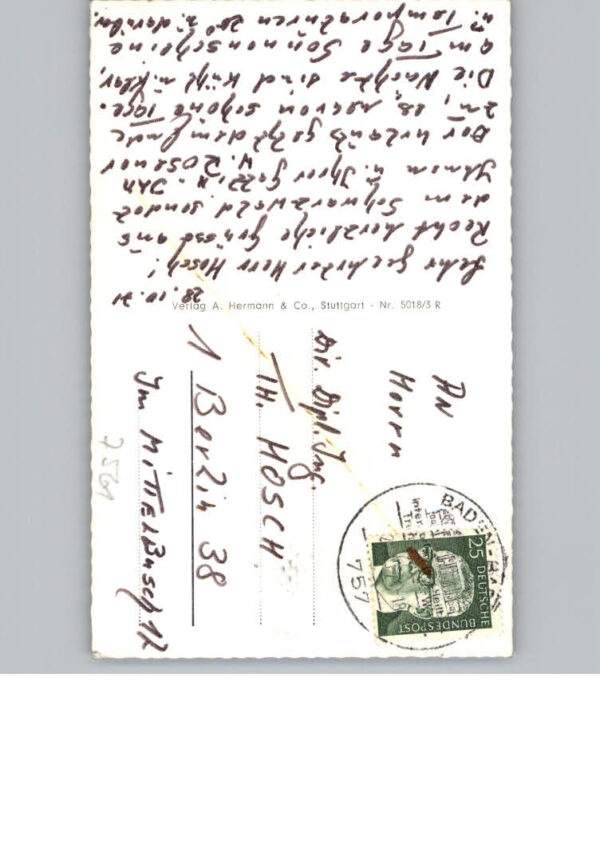 28.10.71
Sehr geehrter Herr Hosch!
Recht herzliche Grüsse aus
dem Schwarzwald sendet
Ihnen u. Ihrer Gattin. Ihr
Der Urlaub geht dem Ende
zu, es waren schöne Tage.
Die Nächte sind kühl u. klar,
am Tage Sonnenschein
u. Temperaturen 20° u. darüber.
Verlag A. Hermann & Co., Stuttgart - Nr. 5018/3 R
AN
Herrn
Dir. Dipl. Ing.
TH. HOSCH
1 Berlin 38
Im Mittelbusch 17
7561
BADEN-BADEN
757
25 DEUTSCHE
BUNDESPOST